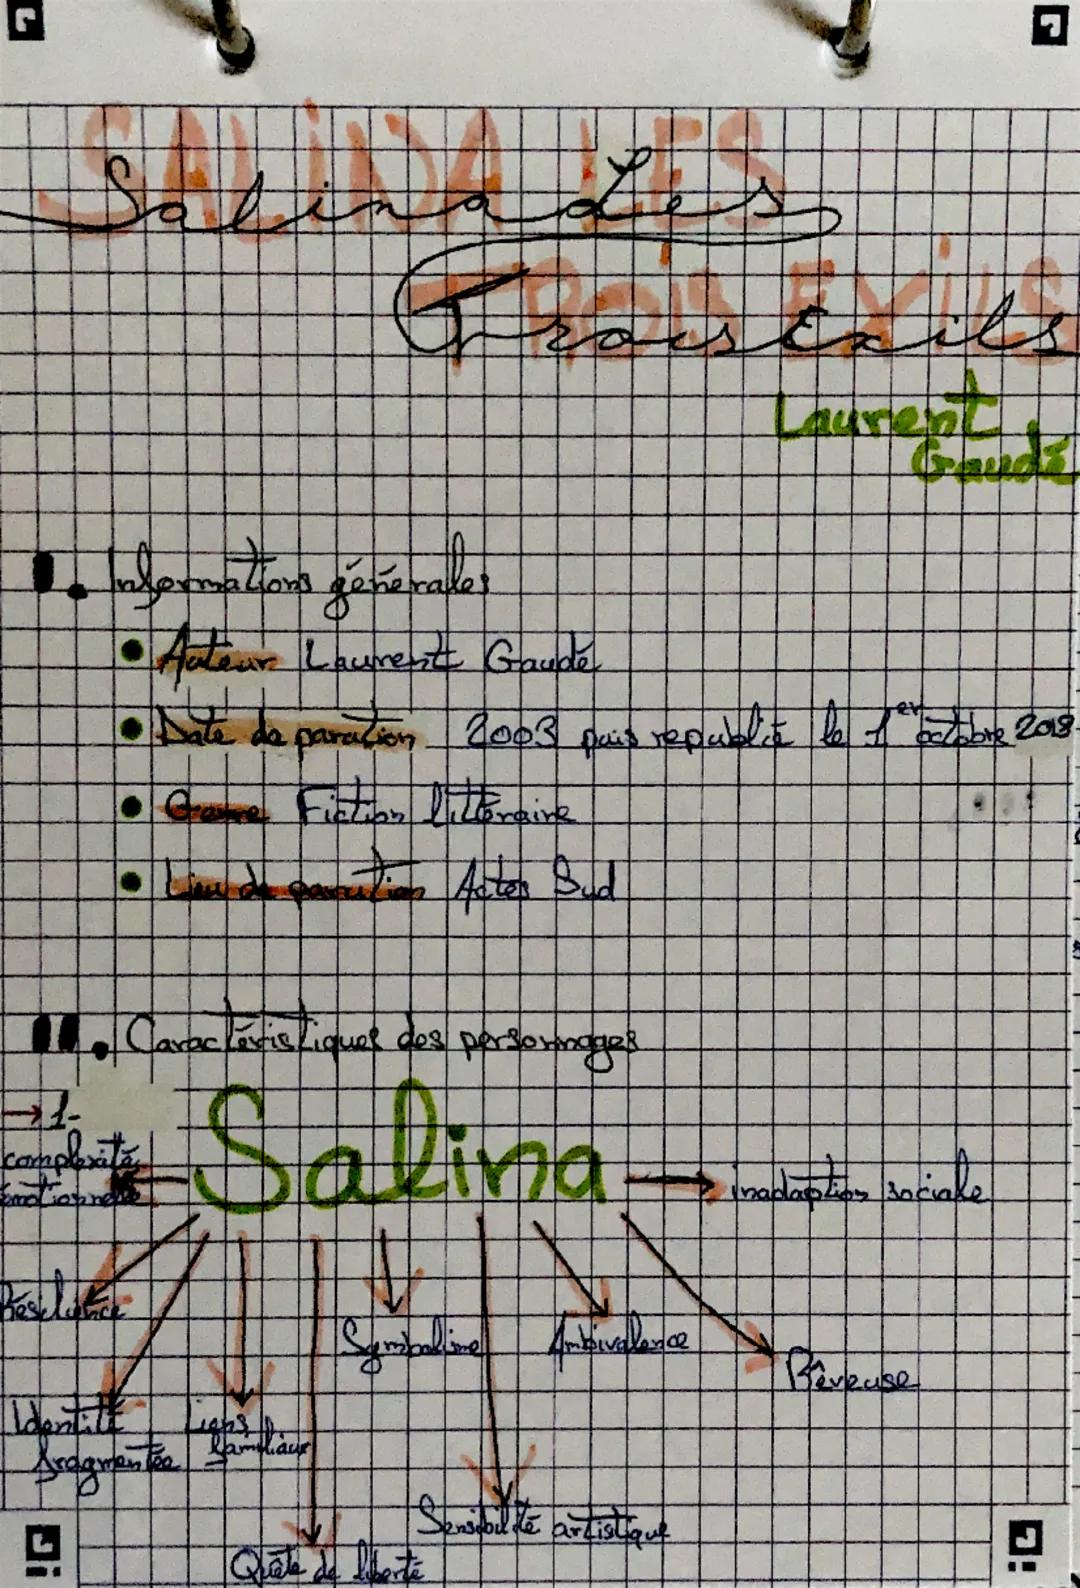 SALINA LES
Salina Les
TROIS EXILS
Trois Exils
Laurent
Gaudé
I. Informations générales
• Auteur Laurent Gaudé
• Date de parution 2003 puis republié le 1er octobre 2018
• Genre Fiction littéraire
• Lieu de parution Actes Sud
II. Caractéristiques des personnages
→ 1-
Salina
complexité
émotionnelle
inadaption sociale
Résilience
Symbolisme
Ambivalence
Rêveuse
Identité
fragmentée
Liens
familiaux
Sensibilité artistique
Quête de liberté